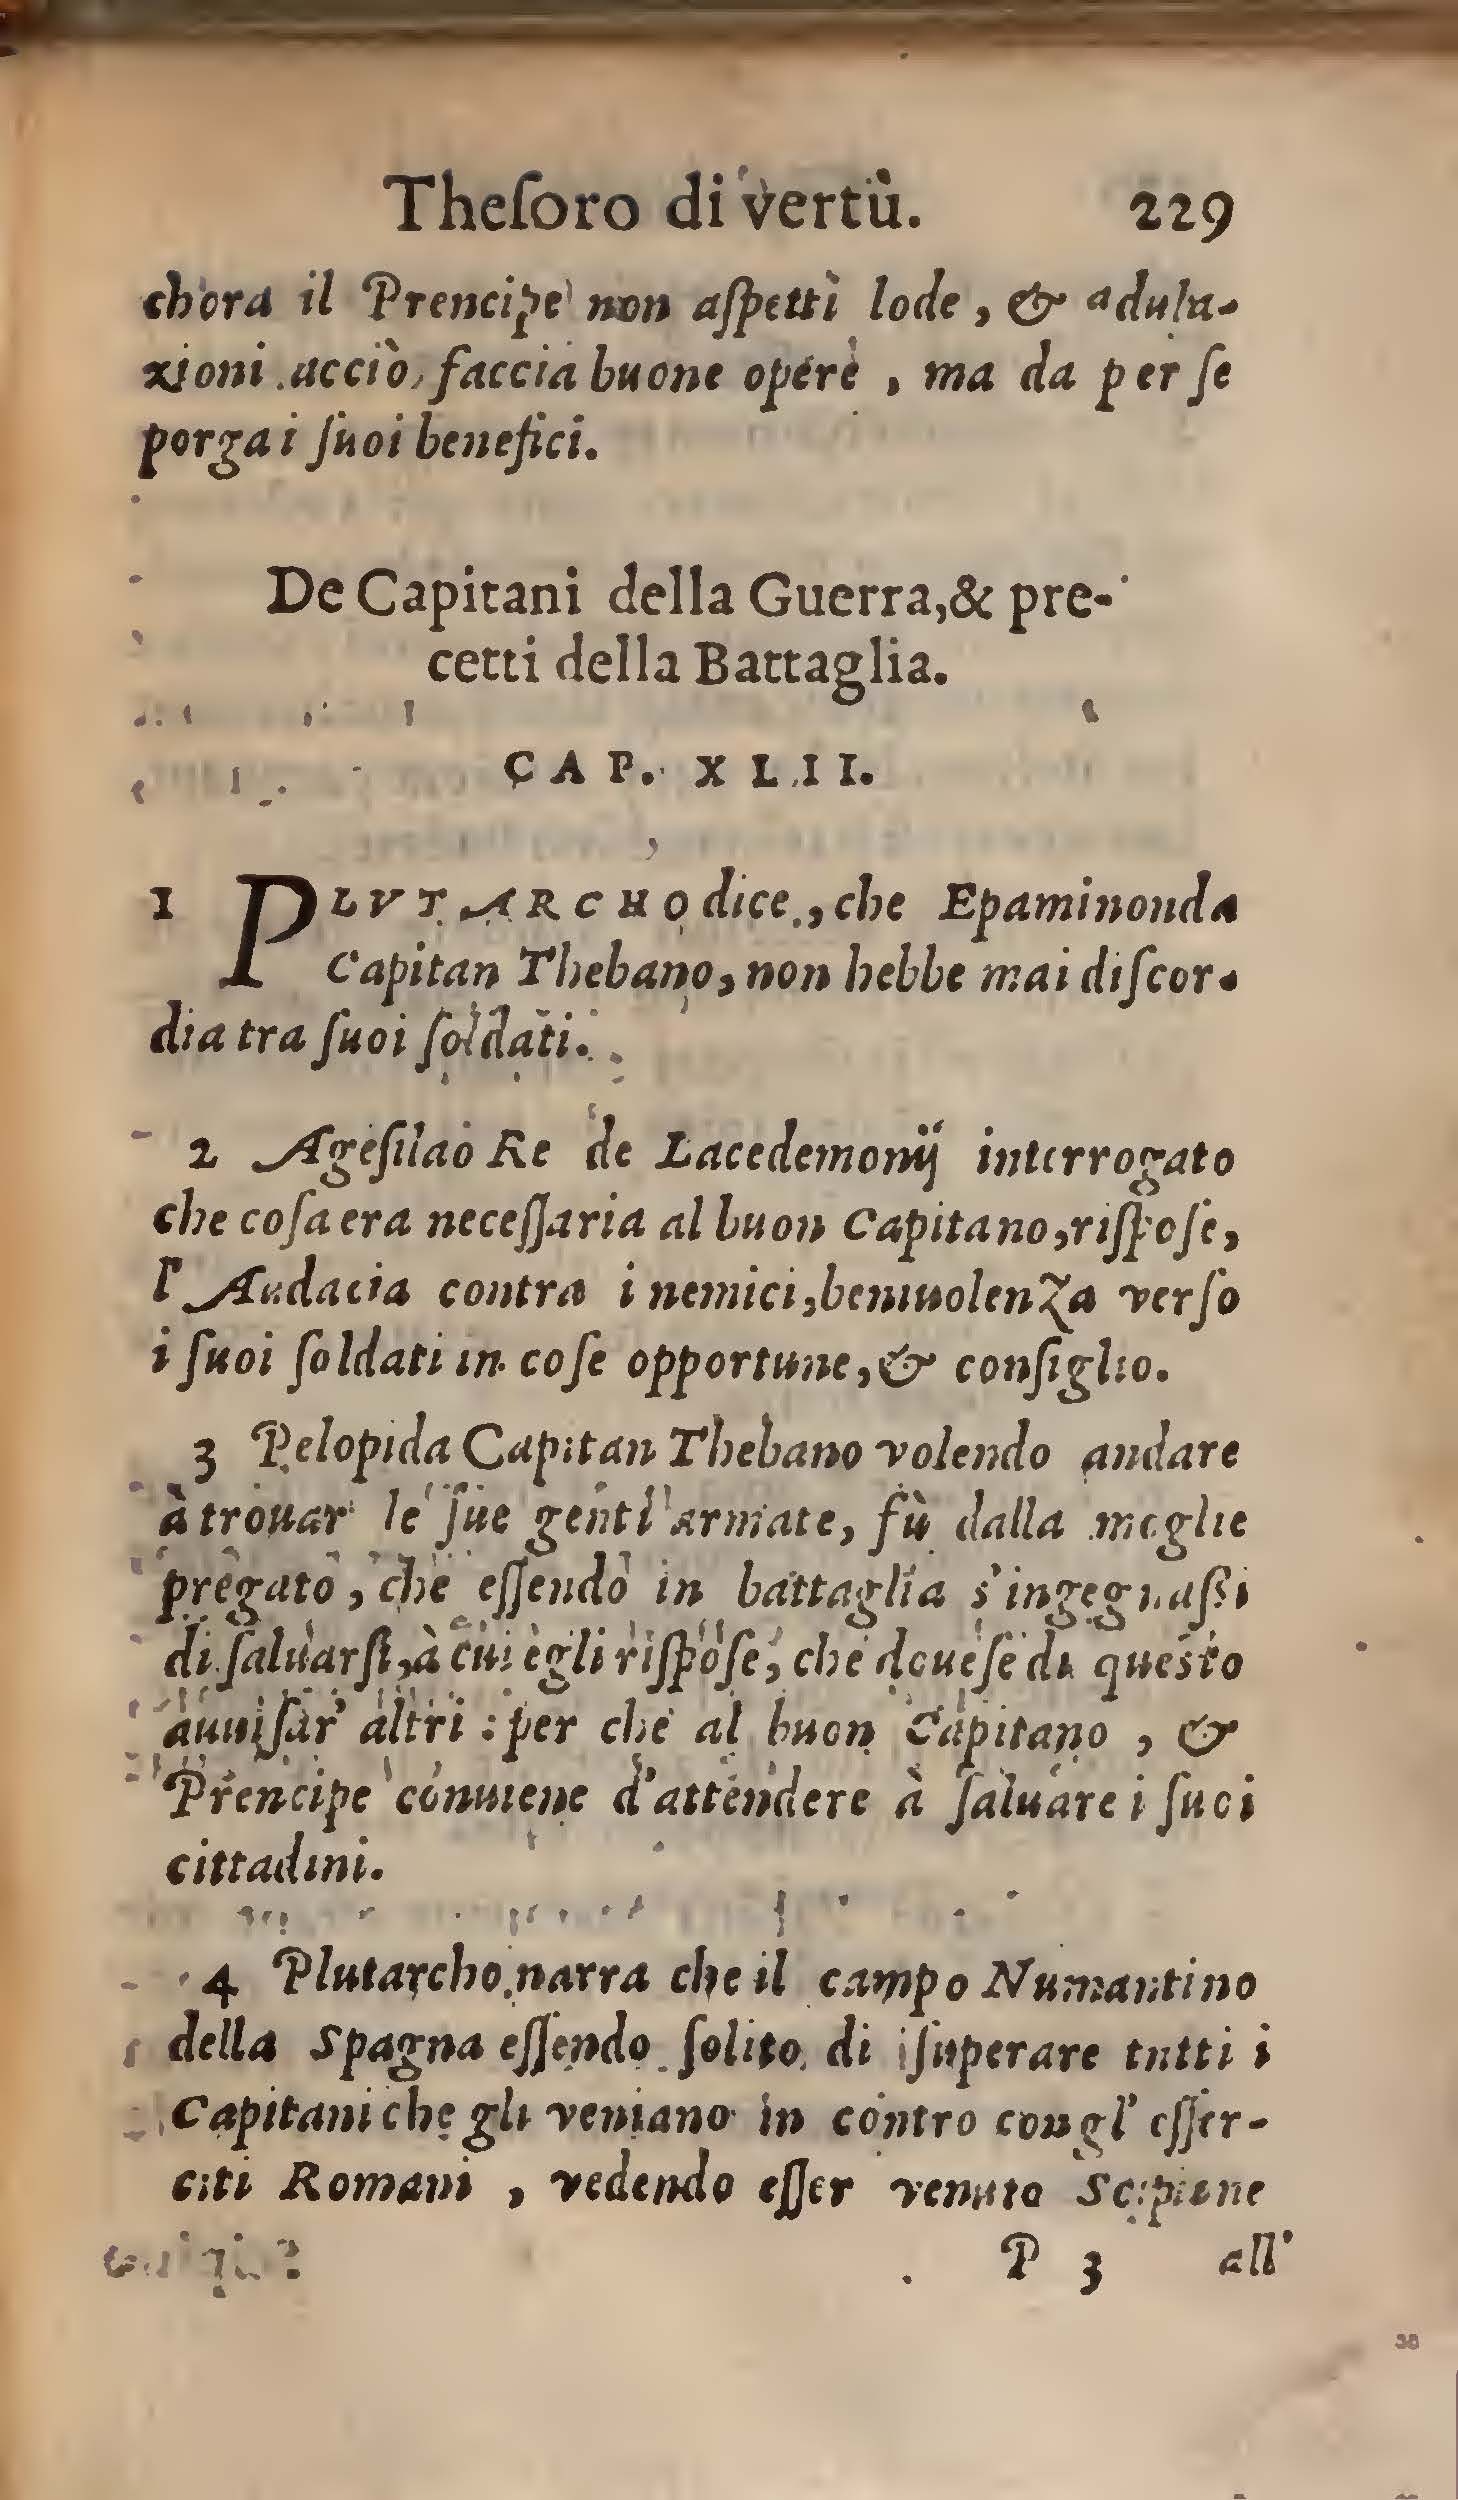 Theſoro di vertù. 229
ch'ora il Prencipe non aſpetti lode, & adula-
zioni acciò faccia buone opere, ma da per ſe
porga i ſuoi benefici.
De Capitani della Guerra, & pre-
cetti della Battaglia.
CAP. XLII.
1 PLVTARCHO dice, che Epaminonda
Capitan Thebano, non hebbe mai diſcor-
dia tra ſuoi ſoldati.
2 Ageſilao Re de Lacedemonij interrogato
che coſa era neceſſaria al buon Capitano, riſpoſe,
l'Audacia contra i nemici, beniuolenza verſo
i ſuoi ſoldati in coſe opportune, & conſiglio.
3 Pelopida Capitan Thebano volendo andare
à trouar le ſue genti armate, fù dalla moglie
pregato, che eſſendo in battaglia s'ingegnaſſi
di ſaluarſi, à cui egli riſpoſe, che doueſe di queſto
auuiſar altri : per che al buon Capitano, &
Prencipe conuiene d'attendere à ſaluare i ſuoi
cittadini.
4 Plutarcho narra che il campo Numantino
della Spagna eſſendo ſolito di ſuperare tutti i
Capitani che gli veniano in contro con gl'eſſer-
citi Romani, vedendo eſſer venuto Scipione
P 3 all'
38